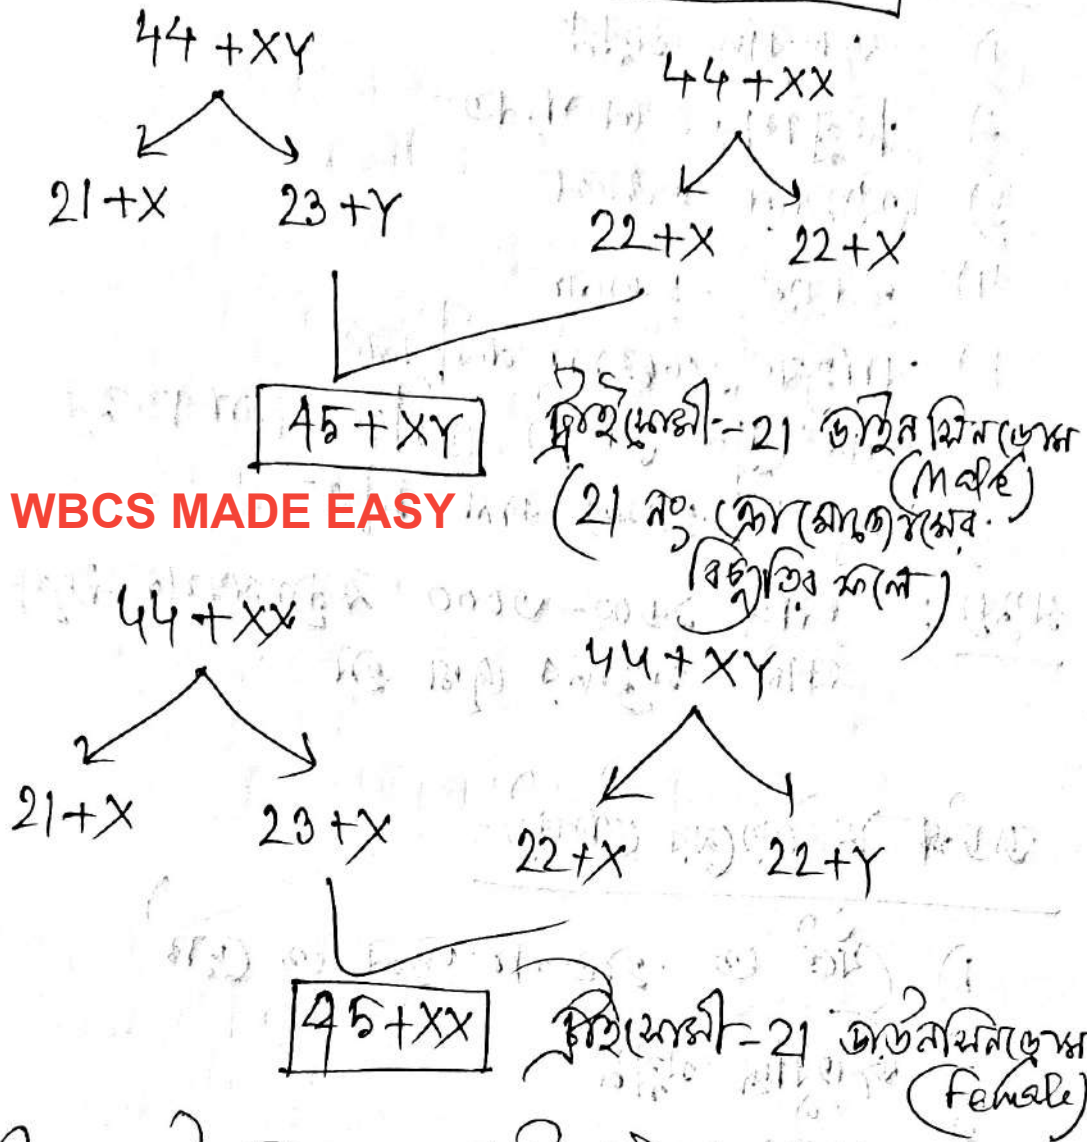 44 + XY
44 + XX
21 + X 23 + Y
22 + X 22 + X
45 + XY
ট্রাইসোমী-21 ডাউন সিনড্রোম
(Male)
(21 নং ক্রোমোজোমের
বিচ্যুতির ফলে)
WBCS MADE EASY
44 + XX
44 + XY
21 + X 23 + X
22 + X 22 + Y
45 + XX
ট্রাইসোমী-21 ডাউনসিনড্রোম
(Female)